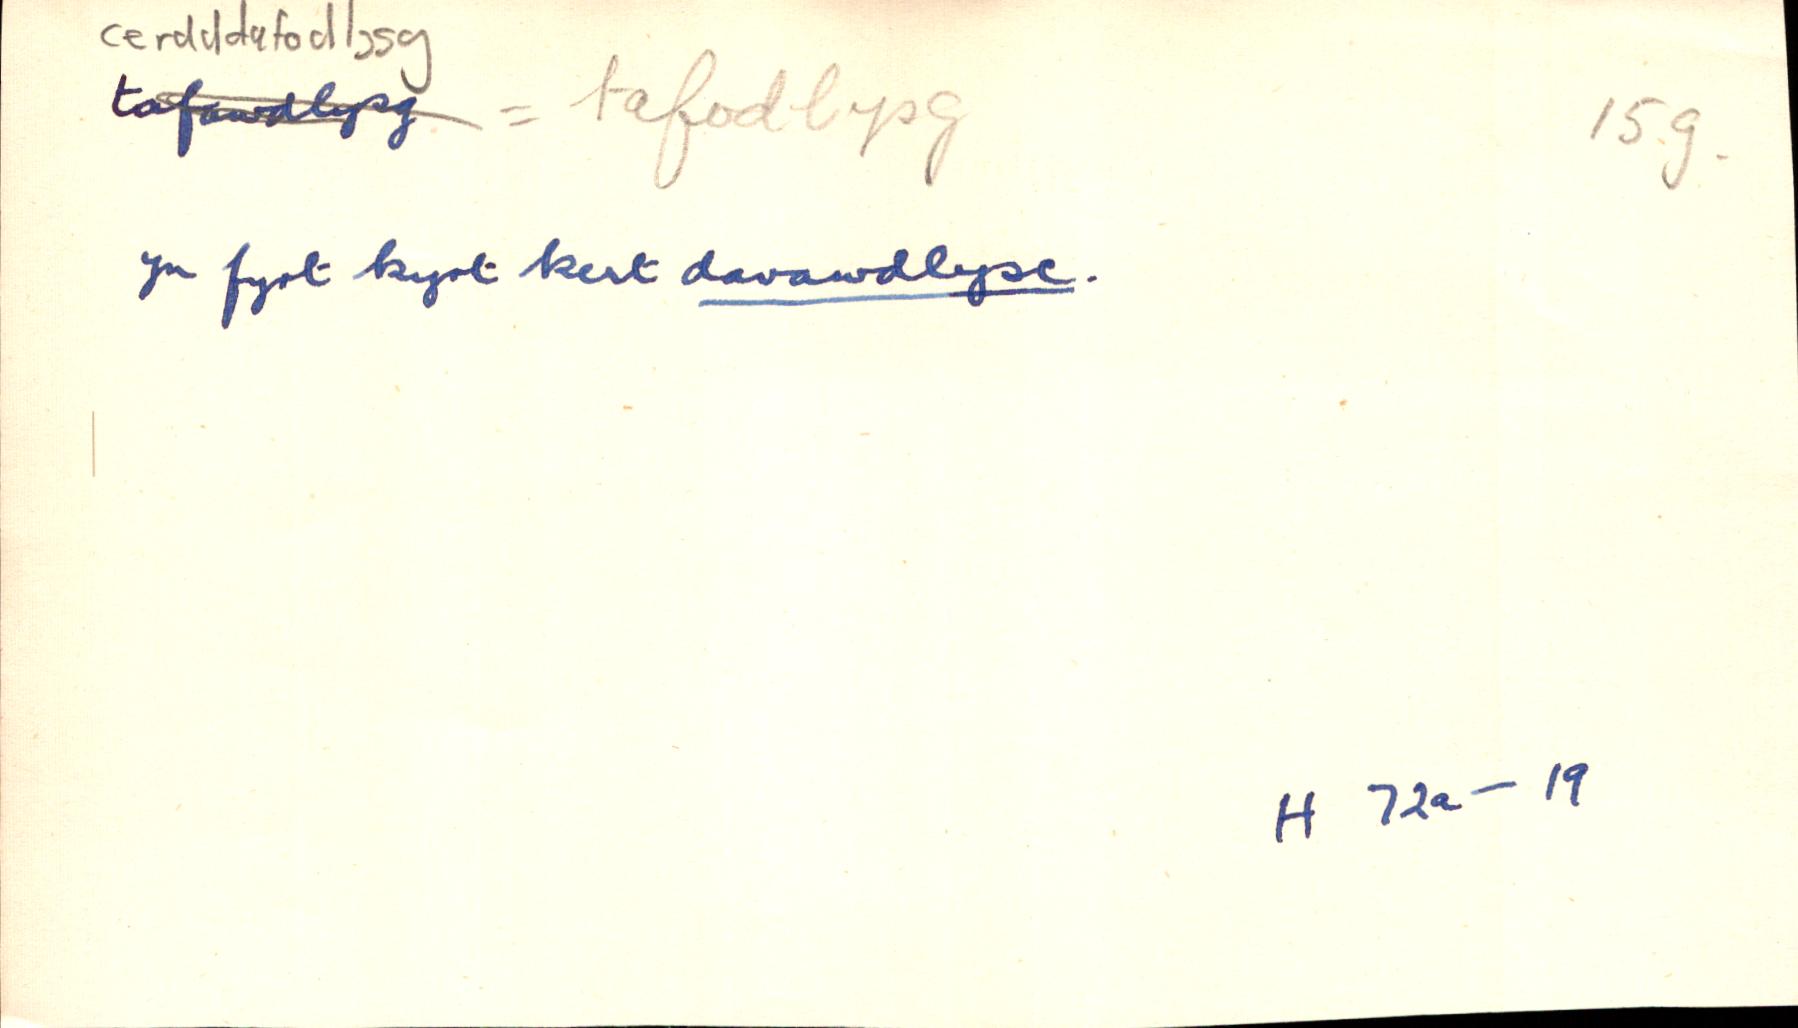 cerdddafodlysg
tafawdlysg = tafodlysg 15g.
yn fyrt kyrt kert davawdlysc.
H 72a — 19